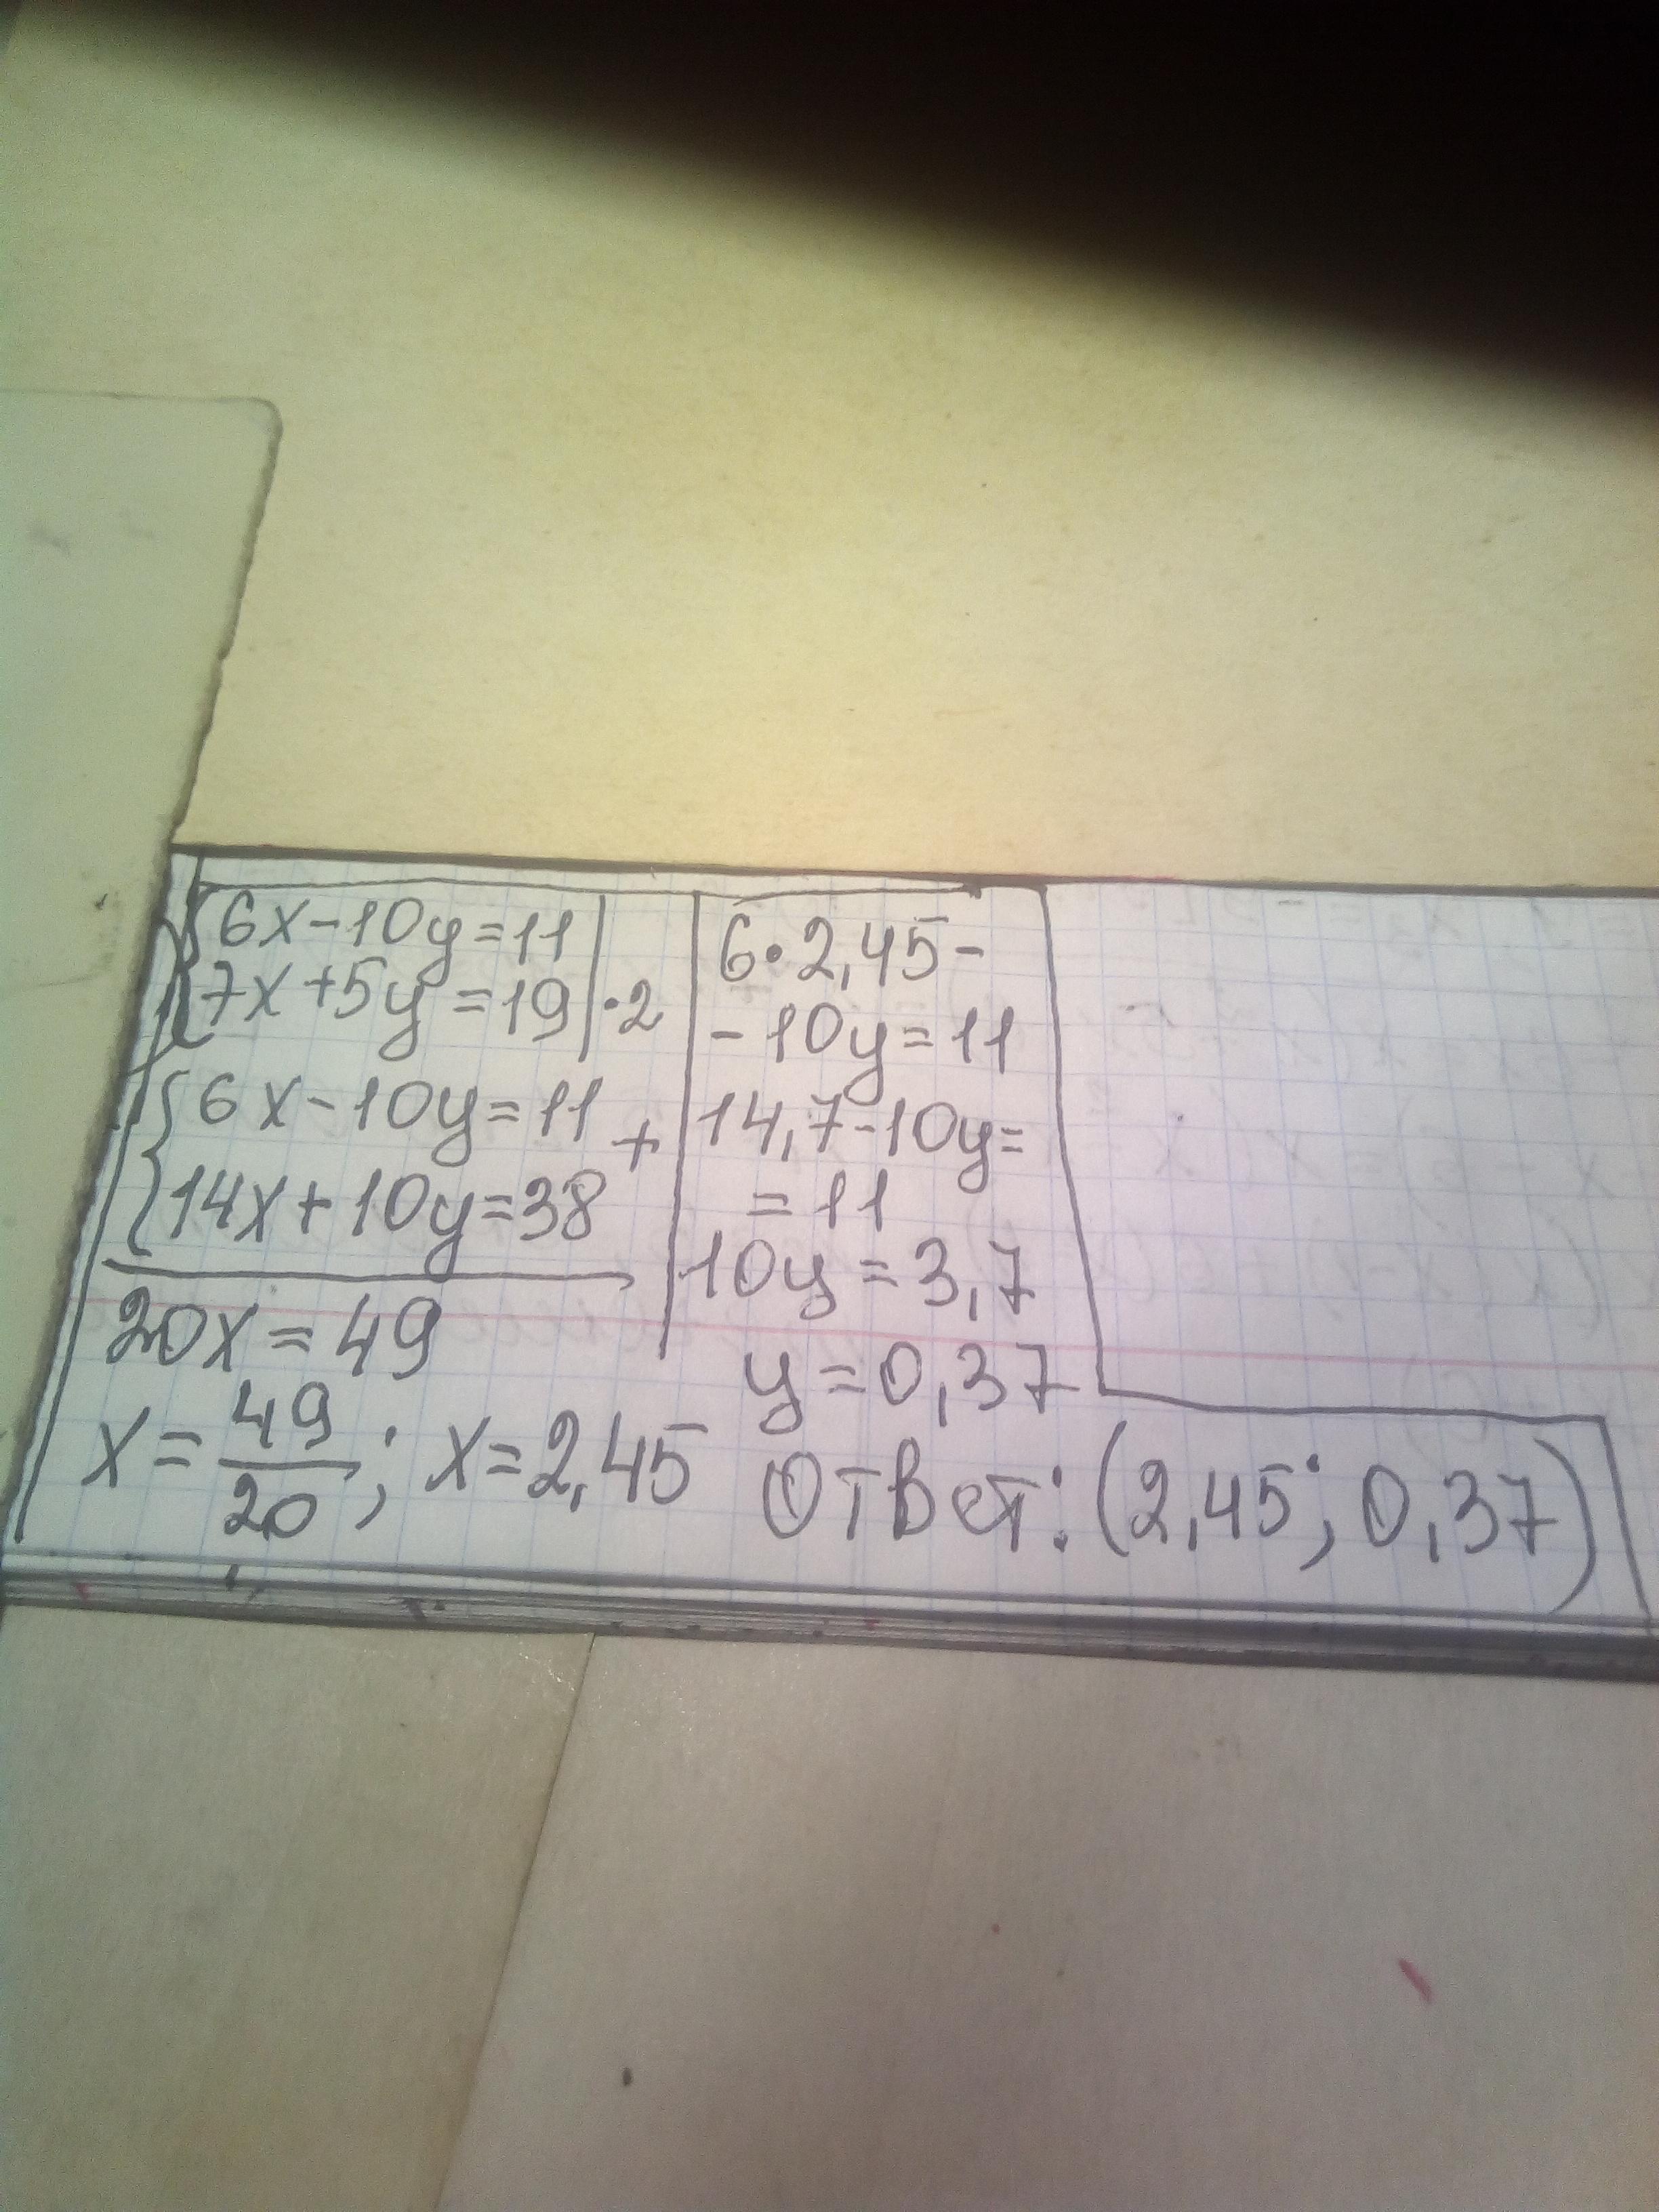 {6x-10y=11
{7x+5y=19|·2
{6x-10y=11
+
{14x+10y=38
20x=49
x=49/20; x=2,45
6·2,45-
-10y=11
14,7-10y=
=11
10y=3,7
y=0,37
Ответ: (2,45; 0,37)